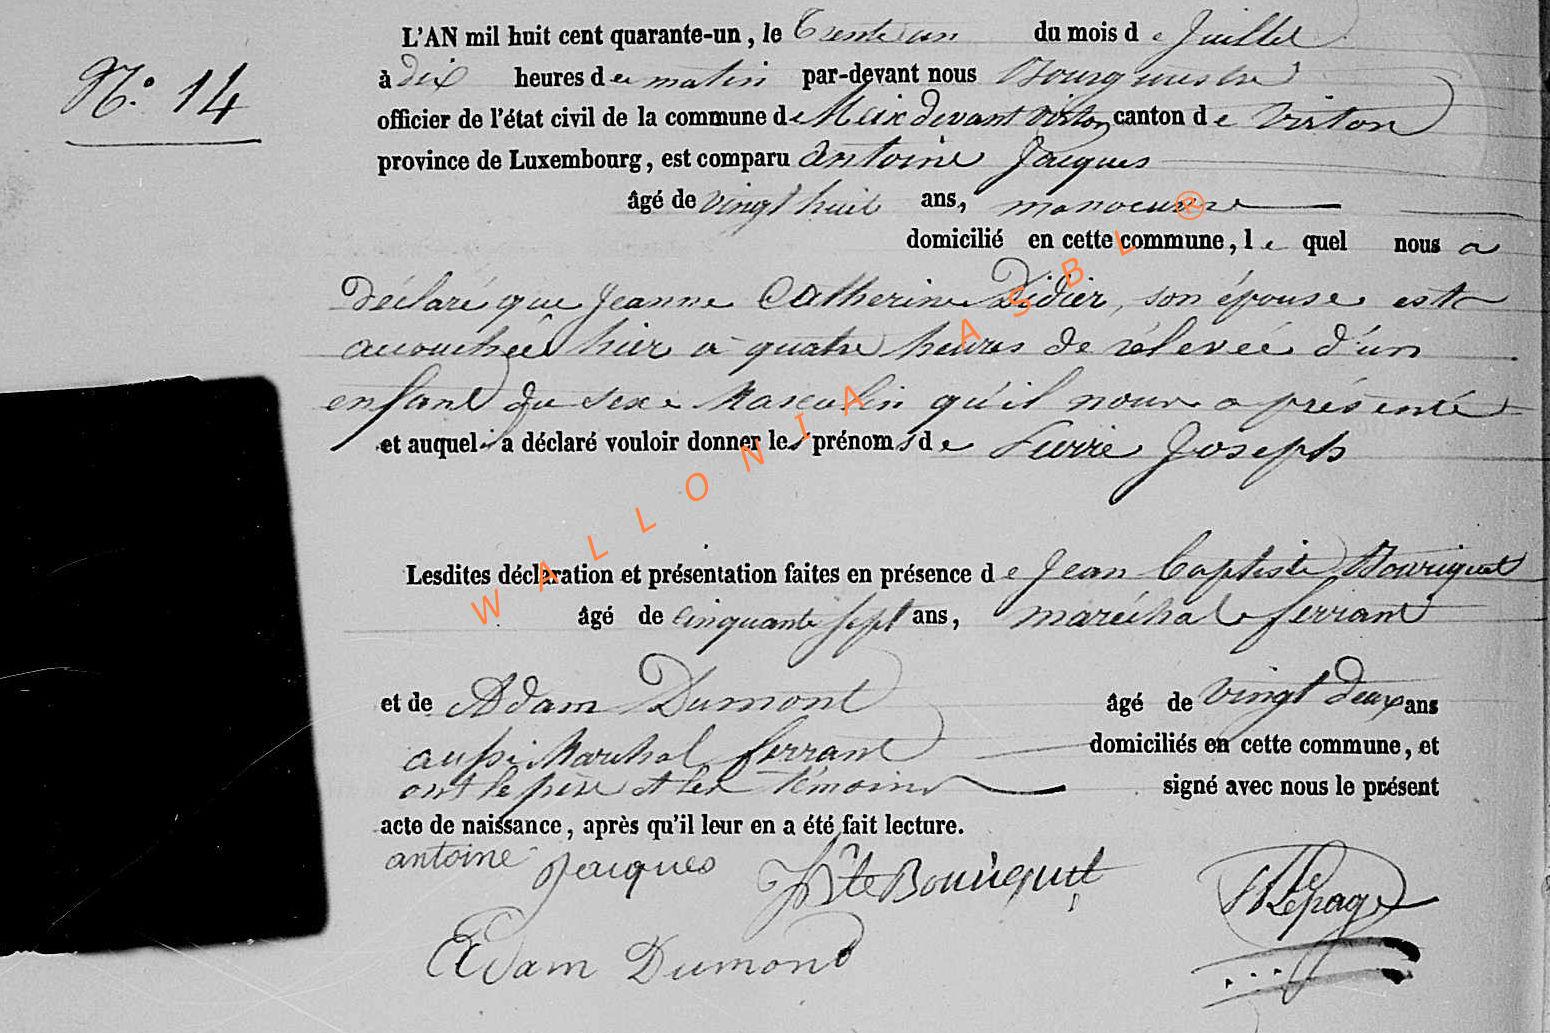 L'AN mil huit cent quarante-un, le Trente un du mois de Juillet
N.o 14
à dix heures du matin par-devant nous Bourgmestre
officier de l'état civil de la commune de Meix devant Virton canton de Virton
province de Luxembourg, est comparu Antoine Jacques
âgé de vingt huit ans, manoeuvre
domicilié en cette commune, le quel nous a
Déclaré que Jeanne Catherine Didier, son épouse est
accouchée hier à quatre heures de relevée d'un
enfant du sexe Masculin qu'il nous a présenté
et auquel il a déclaré vouloir donner les prénoms de Pierre Joseph
Lesdites déclaration et présentation faites en présence de Jean Baptiste Bouriquet
âgé de cinquante sept ans, maréchal ferrant
et de Adam Dumont âgé de vingt deux ans
aussi Marechal ferrant domiciliés en cette commune, et
ont le père et les témoins signé avec nous le présent
acte de naissance, après qu'il leur en a été fait lecture.
antoine Jacques JBte Bouriquet Lepage
Adam Dumond
WALLONIA ASBL ®